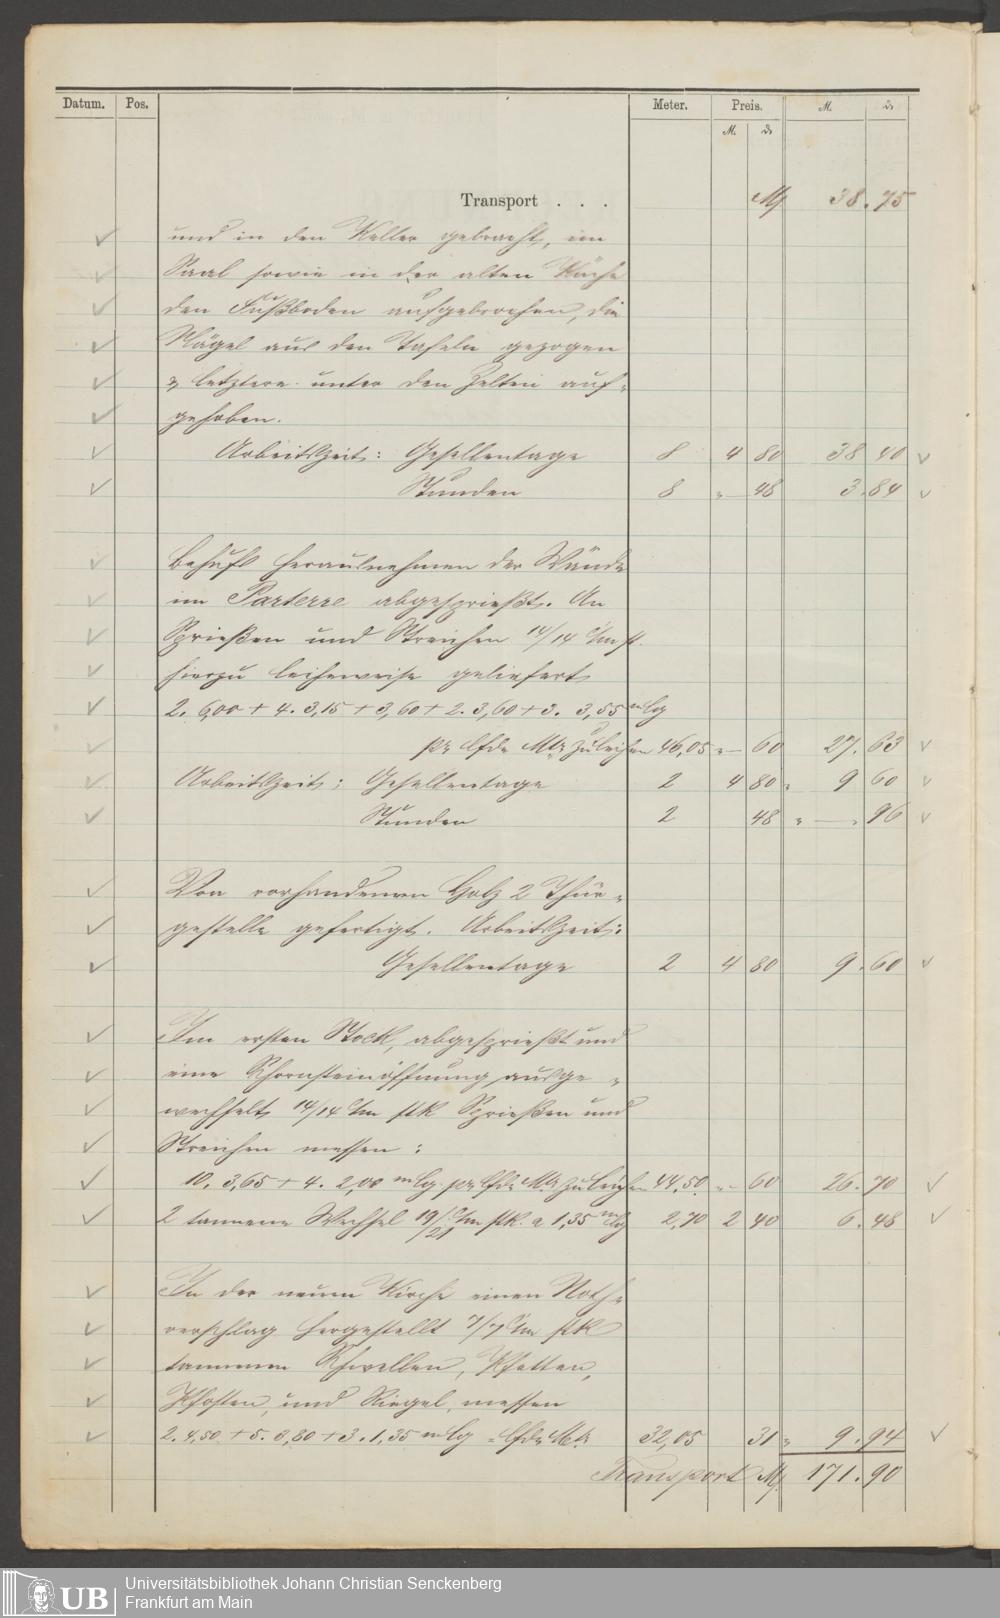 Datum. Pos. Meter. Preis. M. ₰
M. ₰
Transport . . . M 38.75
und in den Keller gebracht, im
Saal sowie in der alten Küche
den Fußboden aufgebrochen, die
Nägel aus den Tafeln gezogen
& letztere unter den Zelten auf-
gehoben.
Arbeitszeit: Gesellentage 8 4 80 38 40
Stunden 8 " 48 3.84
Behufs Herausnehmen der Wände
im Parterre abgesprießt. An
Sprießen und Streichen 14/14 c/m st.
hierzu leihweise geliefert
2. 6,00 + 4. 3,15 + 3,60 + 2. 3,60 + 3. 3,55 m lg
pr. lfde Mtr zu leihen 46,05 " 60 27.63
Arbeitszeit: Gesellentage 2 4 80 " 9 60
Stunden 2 48 " — " 96
Von vorhandenem Holz 2 Thür-
gestelle gefertigt. Arbeitszeit:
Gesellentage 2 4 80 9.60
Im ersten Stock, abgesprießt und
eine Schornsteinöffnung ausge-
wechselt, 14/14 c/m stk Sprießen und
Streichen messen:
10. 3,65 + 4. 2,00 m lg. pr. lfde Mtr zu leihen 44,50 " 60 26.70
2 tannene Wechsel 19/21 c/m stk. a 1,35 m lg 2,70 2 40 6.48
In der neuen Küche einen Noth-
verschlag hergestellt 7/7 c/m stk
tannenen Schwellen, Pfetten,
Pfosten, und Riegel, messen
2. 4,50 + 5. 3,80 + 3. 1,35 m lg = lfde Mtr 32,05 31 " 9.94
Transport M 171.90
UB
Universitätsbibliothek Johann Christian Senckenberg
Frankfurt am Main